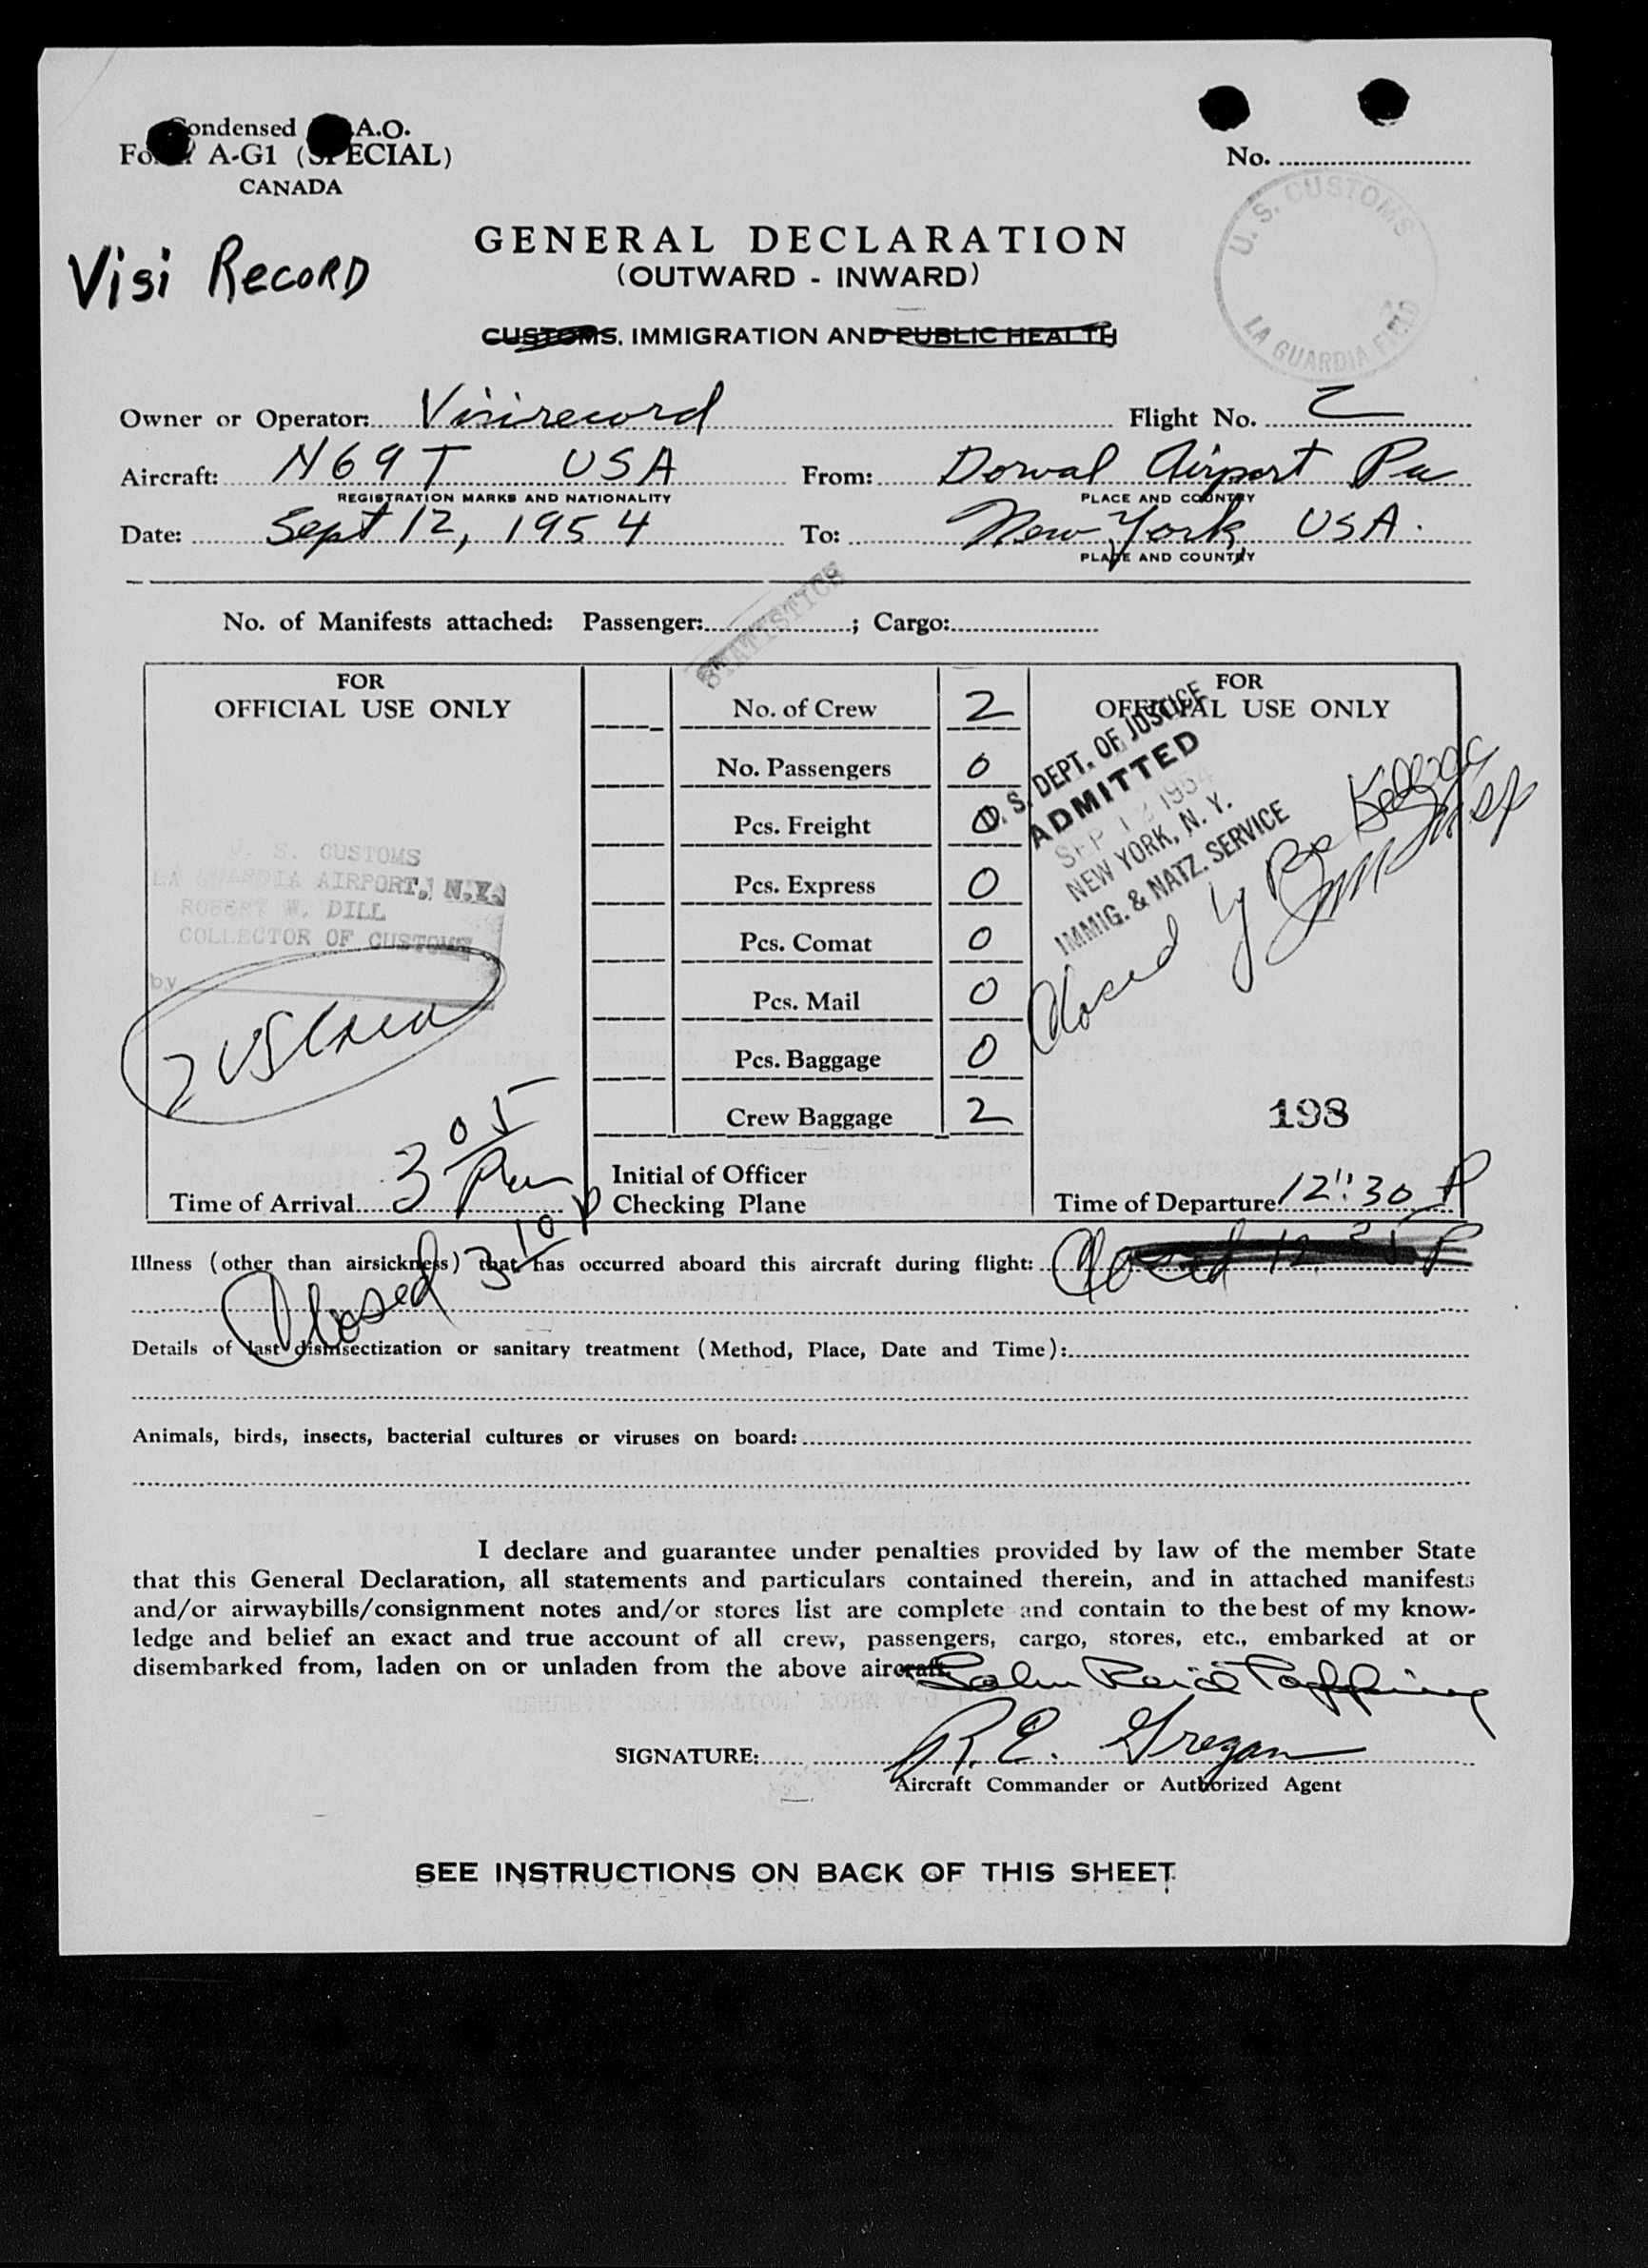 Condensed A.O.
Form A-G1 (SPECIAL)
CANADA
No.
U. S. CUSTOMS
LA GUARDIA FIELD
Visi Record
GENERAL DECLARATION
(OUTWARD - INWARD)
CUSTOMS, IMMIGRATION AND PUBLIC HEALTH
Owner or Operator: Visirecord Flight No. 2
Aircraft: N69T USA From: Dorval Airport
REGISTRATION MARKS AND NATIONALITY PLACE AND COUNTRY
Date: Sept 12, 1954 To: New York, USA.
PLACE AND COUNTRY
STATISTICS
No. of Manifests attached: Passenger: ; Cargo:
FOR
OFFICIAL USE ONLY
U. S. CUSTOMS
LA GUARDIA AIRPORT, N.Y.
ROBERT W. DILL
COLLECTOR OF CUSTOMS
by
2 US
Time of Arrival 3 05 Pm
No. of Crew 2
No. Passengers 0
Pcs. Freight 0
Pcs. Express 0
Pcs. Comat 0
Pcs. Mail 0
Pcs. Baggage 0
Crew Baggage 2
Initial of Officer
Checking Plane
FOR
OFFICIAL USE ONLY
U. S. DEPT. OF JUSTICE
ADMITTED
SEP 12 1954
NEW YORK, N. Y.
IMMIG. & NATZ. SERVICE
Closed by
198
Time of Departure 12:30 P
Illness (other than airsickness) that has occurred aboard this aircraft during flight: Closed 12 25 P
Closed 3 10 P
Details of last disinsectization or sanitary treatment (Method, Place, Date and Time):
Animals, birds, insects, bacterial cultures or viruses on board:
I declare and guarantee under penalties provided by law of the member State
that this General Declaration, all statements and particulars contained therein, and in attached manifests
and/or airwaybills/consignment notes and/or stores list are complete and contain to the best of my know-
ledge and belief an exact and true account of all crew, passengers, cargo, stores, etc., embarked at or
disembarked from, laden on or unladen from the above aircraft.
John Reid Topping
SIGNATURE: R. E. Gregan
Aircraft Commander or Authorized Agent
SEE INSTRUCTIONS ON BACK OF THIS SHEET